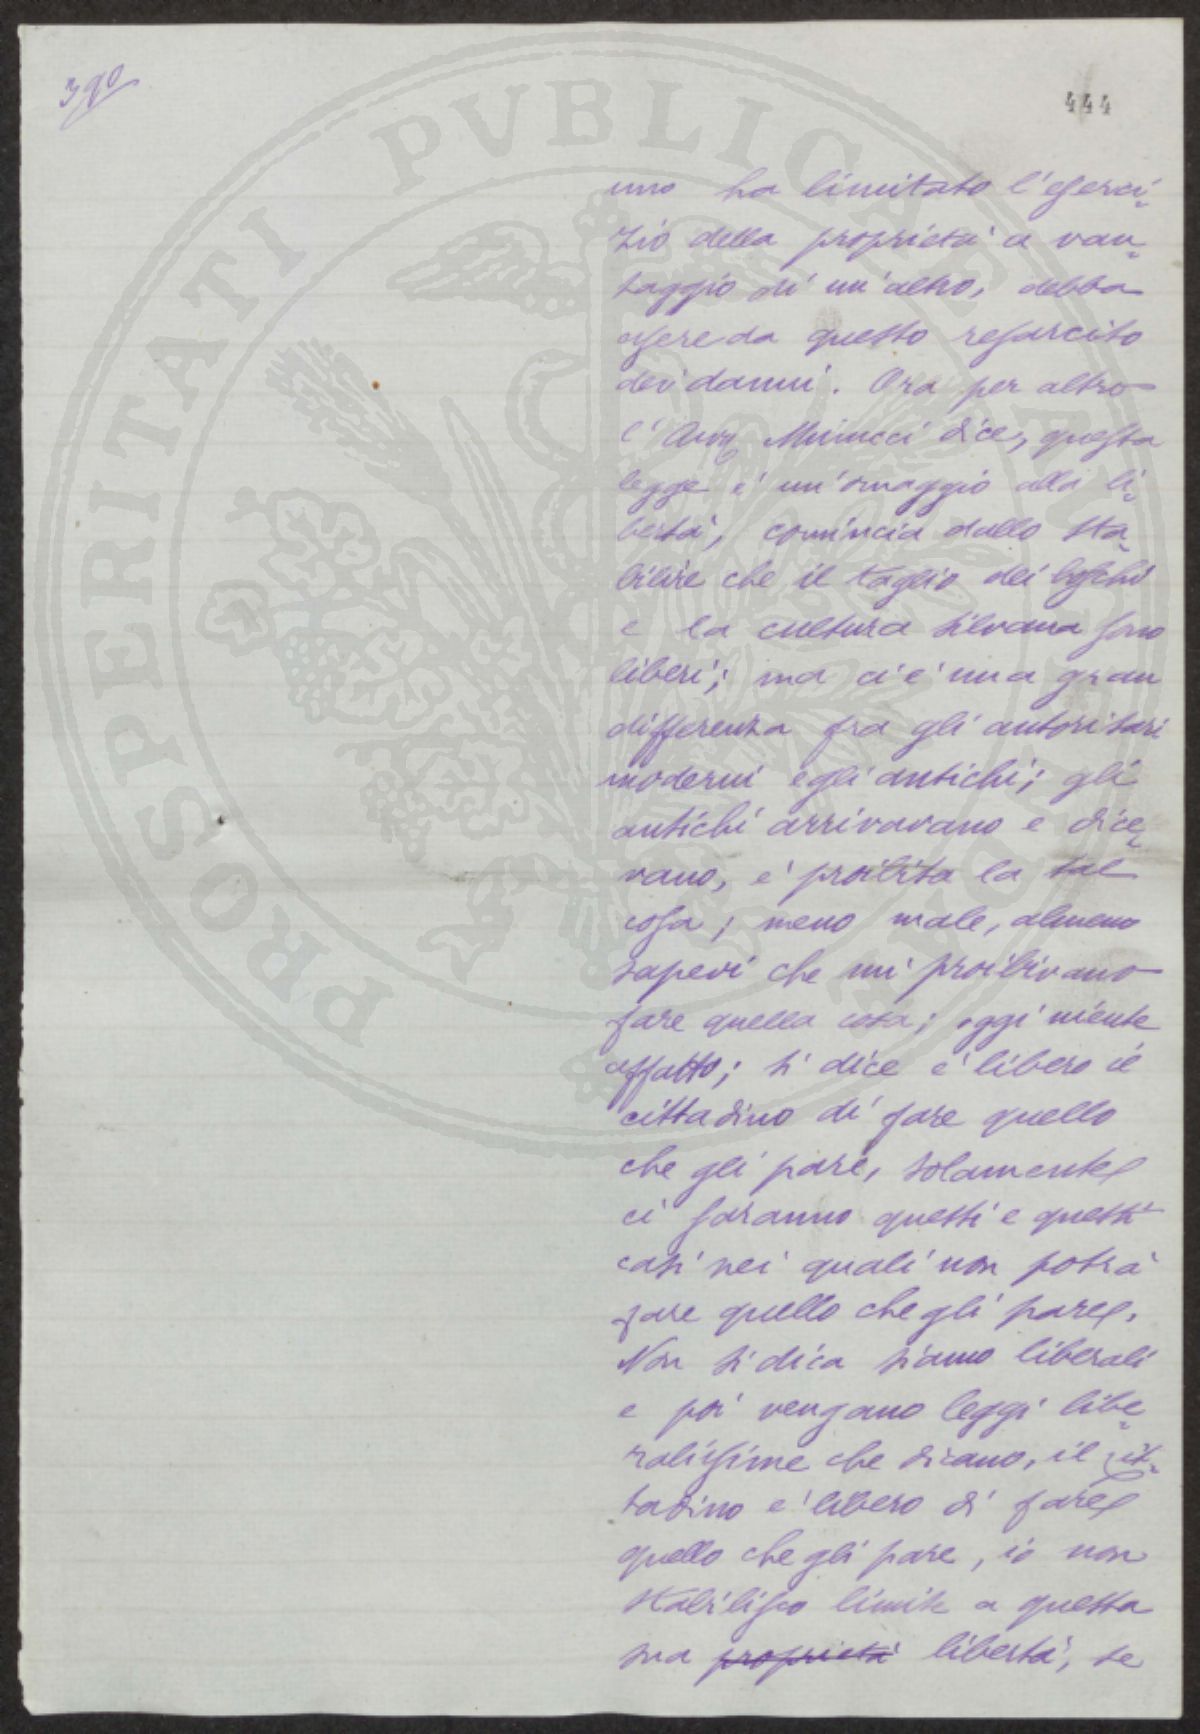 390
444
uno ha limitato l'eserci-
zio della proprietà a van-
taggio di un'altro, debba
essere da questo resarcito
dei danni. Ora per altro
l'Avv. Minucci dice, questa
legge è un'omaggio alla li-
bertà, comincia dallo sta-
bilire che il taglio dei boschi
e la cultura silvana sono
liberi; ma ci è una gran
differenza fra gli autoritari
moderni e gli antichi; gli
antichi arrivavano e dice-
vano, è proibita la tal
cosa; meno male, almeno
sapevi che mi proibivano
fare quella cosa; oggi niente
affatto; si dice è libero il
cittadino di fare quello
che gli pare, solamente
ci saranno questi e questi
casi nei quali non potrà
fare quello che gli pare.
Non si dica siamo liberali
e poi vengano leggi libe-
ralissime che dicano, il cit-
tadino è libero di fare
quello che gli pare, io non
stabilisco limite a questa
sua proprietà libertà, se
PROSPERITATI PVBLICAE